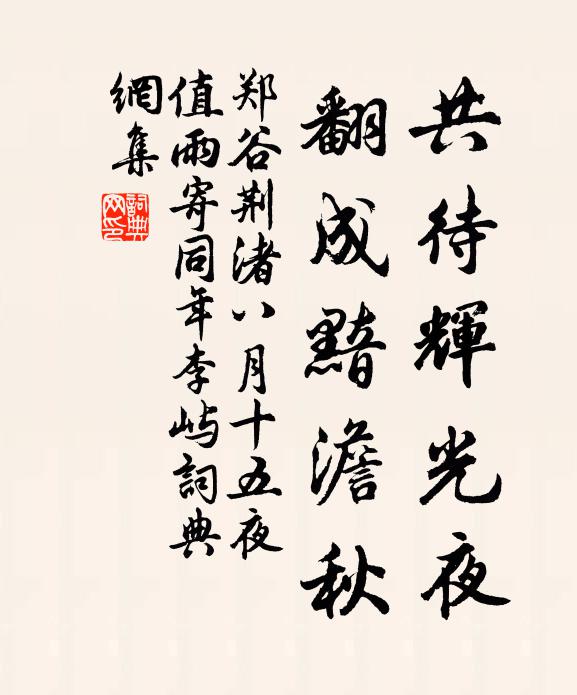 共待輝光夜
翻成黯澹秋
郑谷荆渚八月十五夜
值雨寄同年李屿詞典
網集
詞典网印